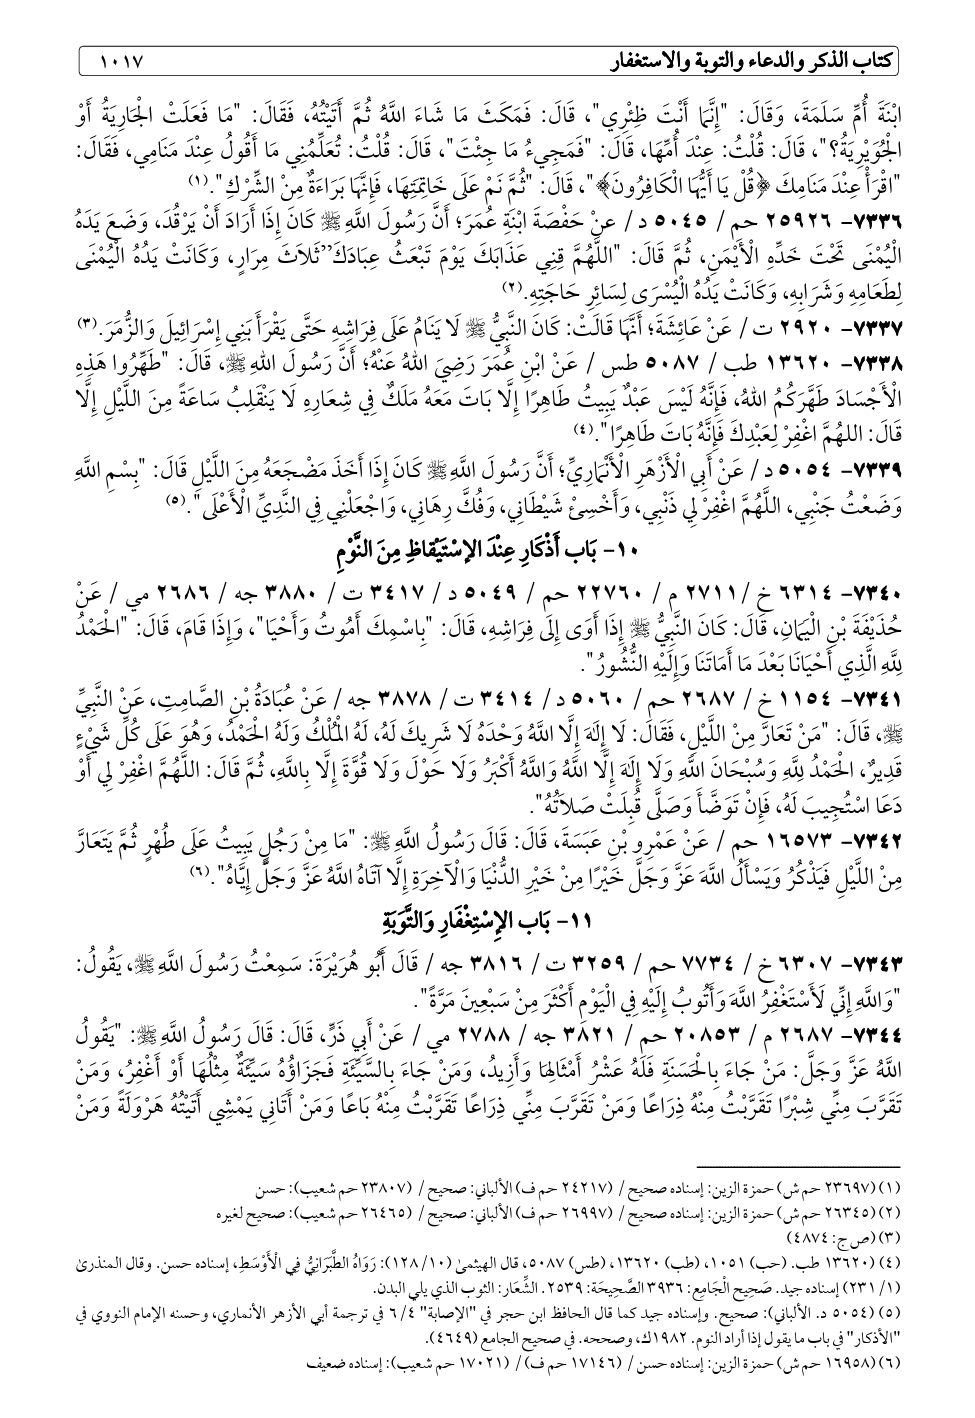 كتاب الذكر والدعاء والتوبة والاستغفار ١٠١٧
ابْنَةَ أُمِّ سَلَمَةَ، وَقَالَ: "إِنَّمَا أَنْتَ ظِئْرِي"، قَالَ: فَمَكَثَ مَا شَاءَ اللَّهُ ثُمَّ أَتَيْتُهُ، فَقَالَ: "مَا فَعَلَتْ الْجَارِيَةُ أَوْ
الْجُوَيْرِيَةُ؟"، قَالَ: قُلْتُ: عِنْدَ أُمِّهَا، قَالَ: "فَمَجِيءُ مَا جِئْتَ"، قَالَ: قُلْتُ: تُعَلِّمُنِي مَا أَقُولُ عِنْدَ مَنَامِي، فَقَالَ:
"اقْرَأْ عِنْدَ مَنَامِكَ ﴿قُلْ يَا أَيُّهَا الْكَافِرُونَ﴾"، قَالَ: "ثُمَّ نَمْ عَلَى خَاتِمَتِهَا، فَإِنَّهَا بَرَاءَةٌ مِنْ الشِّرْكِ".(١)
٧٣٣٦- ٢٥٩٢٦ حم / ٥٠٤٥ د / عنْ حَفْصَةَ ابْنَةِ عُمَرَ؛ أَنَّ رَسُولَ اللَّهِ ﷺ كَانَ إِذَا أَرَادَ أَنْ يَرْقُدَ، وَضَعَ يَدَهُ
الْيُمْنَى تَحْتَ خَدِّهِ الْأَيْمَنِ، ثُمَّ قَالَ: "اللَّهُمَّ قِنِي عَذَابَكَ يَوْمَ تَبْعَثُ عِبَادَكَ" ثَلَاثَ مِرَارٍ، وَكَانَتْ يَدُهُ الْيُمْنَى
لِطَعَامِهِ وَشَرَابِهِ، وَكَانَتْ يَدُهُ الْيُسْرَى لِسَائِرِ حَاجَتِهِ.(٢)
٧٣٣٧- ٢٩٢٠ ت / عَنْ عَائِشَةَ؛ أَنَّهَا قَالَتْ: كَانَ النَّبِيُّ ﷺ لَا يَنَامُ عَلَى فِرَاشِهِ حَتَّى يَقْرَأَ بَنِي إِسْرَائِيلَ وَالزُّمَرَ.(٣)
٧٣٣٨- ١٣٦٢٠ طب / ٥٠٨٧ طس / عَنْ ابْنِ عُمَرَ رَضِيَ اللهُ عَنْهُ؛ أَنَّ رَسُولَ اللهِ ﷺ، قَالَ: "طَهِّرُوا هَذِهِ
الْأَجْسَادَ طَهَّرَكُمُ اللهُ، فَإِنَّهُ لَيْسَ عَبْدٌ يَبِيتُ طَاهِرًا إِلَّا بَاتَ مَعَهُ مَلَكٌ فِي شِعَارِهِ لَا يَنْقَلِبُ سَاعَةً مِنَ اللَّيْلِ إِلَّا
قَالَ: اللهُمَّ اغْفِرْ لِعَبْدِكَ فَإِنَّهُ بَاتَ طَاهِرًا".(٤)
٧٣٣٩- ٥٠٥٤ د / عَنْ أَبِي الْأَزْهَرِ الْأَنْمَارِيِّ؛ أَنَّ رَسُولَ اللَّهِ ﷺ كَانَ إِذَا أَخَذَ مَضْجَعَهُ مِنَ اللَّيْلِ قَالَ: "بِسْمِ اللَّهِ
وَضَعْتُ جَنْبِي، اللَّهُمَّ اغْفِرْ لِي ذَنْبِي، وَأَخْسِئْ شَيْطَانِي، وَفُكَّ رِهَانِي، وَاجْعَلْنِي فِي النَّدِيِّ الْأَعْلَى".(٥)
١٠- بَاب أَذْكَارِ عِنْدَ الإسْتَيْقَاظِ مِنَ النَّوْمِ
٧٣٤٠- ٦٣١٤ خ / ٢٧١١ م / ٢٢٧٦٠ حم / ٥٠٤٩ د / ٣٤١٧ ت / ٣٨٨٠ جه / ٢٦٨٦ مي / عَنْ
حُذَيْفَةَ بْنِ الْيَمَانِ، قَالَ: كَانَ النَّبِيُّ ﷺ إِذَا أَوَى إِلَى فِرَاشِهِ، قَالَ: "بِاسْمِكَ أَمُوتُ وَأَحْيَا"، وَإِذَا قَامَ، قَالَ: "الْحَمْدُ
لِلَّهِ الَّذِي أَحْيَانَا بَعْدَ مَا أَمَاتَنَا وَإِلَيْهِ النُّشُورُ".
٧٣٤١- ١١٥٤ خ / ٢٦٨٧ حم / ٥٠٦٠ د / ٣٤١٤ ت / ٣٨٧٨ جه / عَنْ عُبَادَةُ بْنِ الصَّامِتِ، عَنْ النَّبِيِّ
ﷺ، قَالَ: "مَنْ تَعَارَّ مِنْ اللَّيْلِ، فَقَالَ: لَا إِلَهَ إِلَّا اللَّهُ وَحْدَهُ لَا شَرِيكَ لَهُ، لَهُ الْمُلْكُ وَلَهُ الْحَمْدُ، وَهُوَ عَلَى كُلِّ شَيْءٍ
قَدِيرٌ، الْحَمْدُ لِلَّهِ وَسُبْحَانَ اللَّهِ وَلَا إِلَهَ إِلَّا اللَّهُ وَاللَّهُ أَكْبَرُ وَلَا حَوْلَ وَلَا قُوَّةَ إِلَّا بِاللَّهِ، ثُمَّ قَالَ: اللَّهُمَّ اغْفِرْ لِي أَوْ
دَعَا اسْتُجِيبَ لَهُ، فَإِنْ تَوَضَّأَ وَصَلَّى قُبِلَتْ صَلَاتُهُ".
٧٣٤٢- ١٦٥٧٣ حم / عَنْ عَمْرِو بْنِ عَبَسَةَ، قَالَ: قَالَ رَسُولُ اللَّهِ ﷺ: "مَا مِنْ رَجُلٍ يَبِيتُ عَلَى طُهْرٍ ثُمَّ يَتَعَارَّ
مِنْ اللَّيْلِ فَيَذْكُرُ وَيَسْأَلُ اللَّهَ عَزَّ وَجَلَّ خَيْرًا مِنْ خَيْرِ الدُّنْيَا وَالْآخِرَةِ إِلَّا آتَاهُ اللَّهُ عَزَّ وَجَلَّ إِيَّاهُ".(٦)
١١- بَاب الإِسْتِغْفَارِ وَالتَّوْبَةِ
٧٣٤٣- ٦٣٠٧ خ / ٧٧٣٤ حم / ٣٢٥٩ ت / ٣٨١٦ جه / قَالَ أَبُو هُرَيْرَةَ: سَمِعْتُ رَسُولَ اللَّهِ ﷺ، يَقُولُ:
"وَاللَّهِ إِنِّي لَأَسْتَغْفِرُ اللَّهَ وَأَتُوبُ إِلَيْهِ فِي الْيَوْمِ أَكْثَرَ مِنْ سَبْعِينَ مَرَّةً".
٧٣٤٤- ٢٦٨٧ م / ٢٠٨٥٣ حم / ٣٨٢١ جه / ٢٧٨٨ مي / عَنْ أَبِي ذَرٍّ، قَالَ: قَالَ رَسُولُ اللَّهِ ﷺ: "يَقُولُ
اللَّهُ عَزَّ وَجَلَّ: مَنْ جَاءَ بِالْحَسَنَةِ فَلَهُ عَشْرُ أَمْثَالِهَا وَأَزِيدُ، وَمَنْ جَاءَ بِالسَّيِّئَةِ فَجَزَاؤُهُ سَيِّئَةٌ مِثْلُهَا أَوْ أَغْفِرُ، وَمَنْ
تَقَرَّبَ مِنِّي شِبْرًا تَقَرَّبْتُ مِنْهُ ذِرَاعًا وَمَنْ تَقَرَّبَ مِنِّي ذِرَاعًا تَقَرَّبْتُ مِنْهُ بَاعًا وَمَنْ أَتَانِي يَمْشِي أَتَيْتُهُ هَرْوَلَةً وَمَنْ
(١) (٢٣٦٩٧ حم ش) حمزة الزين: إسناده صحيح / (٢٤٢١٧ حم ف) الألباني: صحيح / (٢٣٨٠٧ حم شعيب): حسن
(٢) (٢٦٣٤٥ حم ش) حمزة الزين: إسناده صحيح / (٢٦٩٩٧ حم ف) الألباني: صحيح / (٢٦٤٦٥ حم شعيب): صحيح لغيره
(٣) (ص ج: ٤٨٧٤)
(٤) (١٣٦٢٠ طب. (حب) ١٠٥١، (طب) ١٣٦٢٠، (طس) ٥٠٨٧، قال الهيثمىٰ (١٠/ ١٢٨): رَوَاهُ الطَّبَرَانِيُّ فِي الْأَوْسَطِ، إسناده حسن. وقال المنذرىٰ
(١/ ٢٣١) إسناده جيد. صَحِيح الْجَامِع: ٣٩٣٦ الصَّحِيحَة: ٢٥٣٩. الشِّعَار: الثوب الذي يلي البدن.
(٥) (٥٠٥٤ د. الألباني): صحيح. وإسناده جيد كما قال الحافظ ابن حجر في "الإصابة" ٤/ ٦ في ترجمة أبي الأزهر الأنماري، وحسنه الإمام النووي في
"الأذكار" في باب ما يقول إذا أراد النوم. ١٩٨٢ك، وصححه. في صحيح الجامع (٤٦٤٩).
(٦) (١٦٩٥٨ حم ش) حمزة الزين: إسناده حسن / (١٧١٤٦ حم ف) / (١٧٠٢١ حم شعيب): إسناده ضعيف